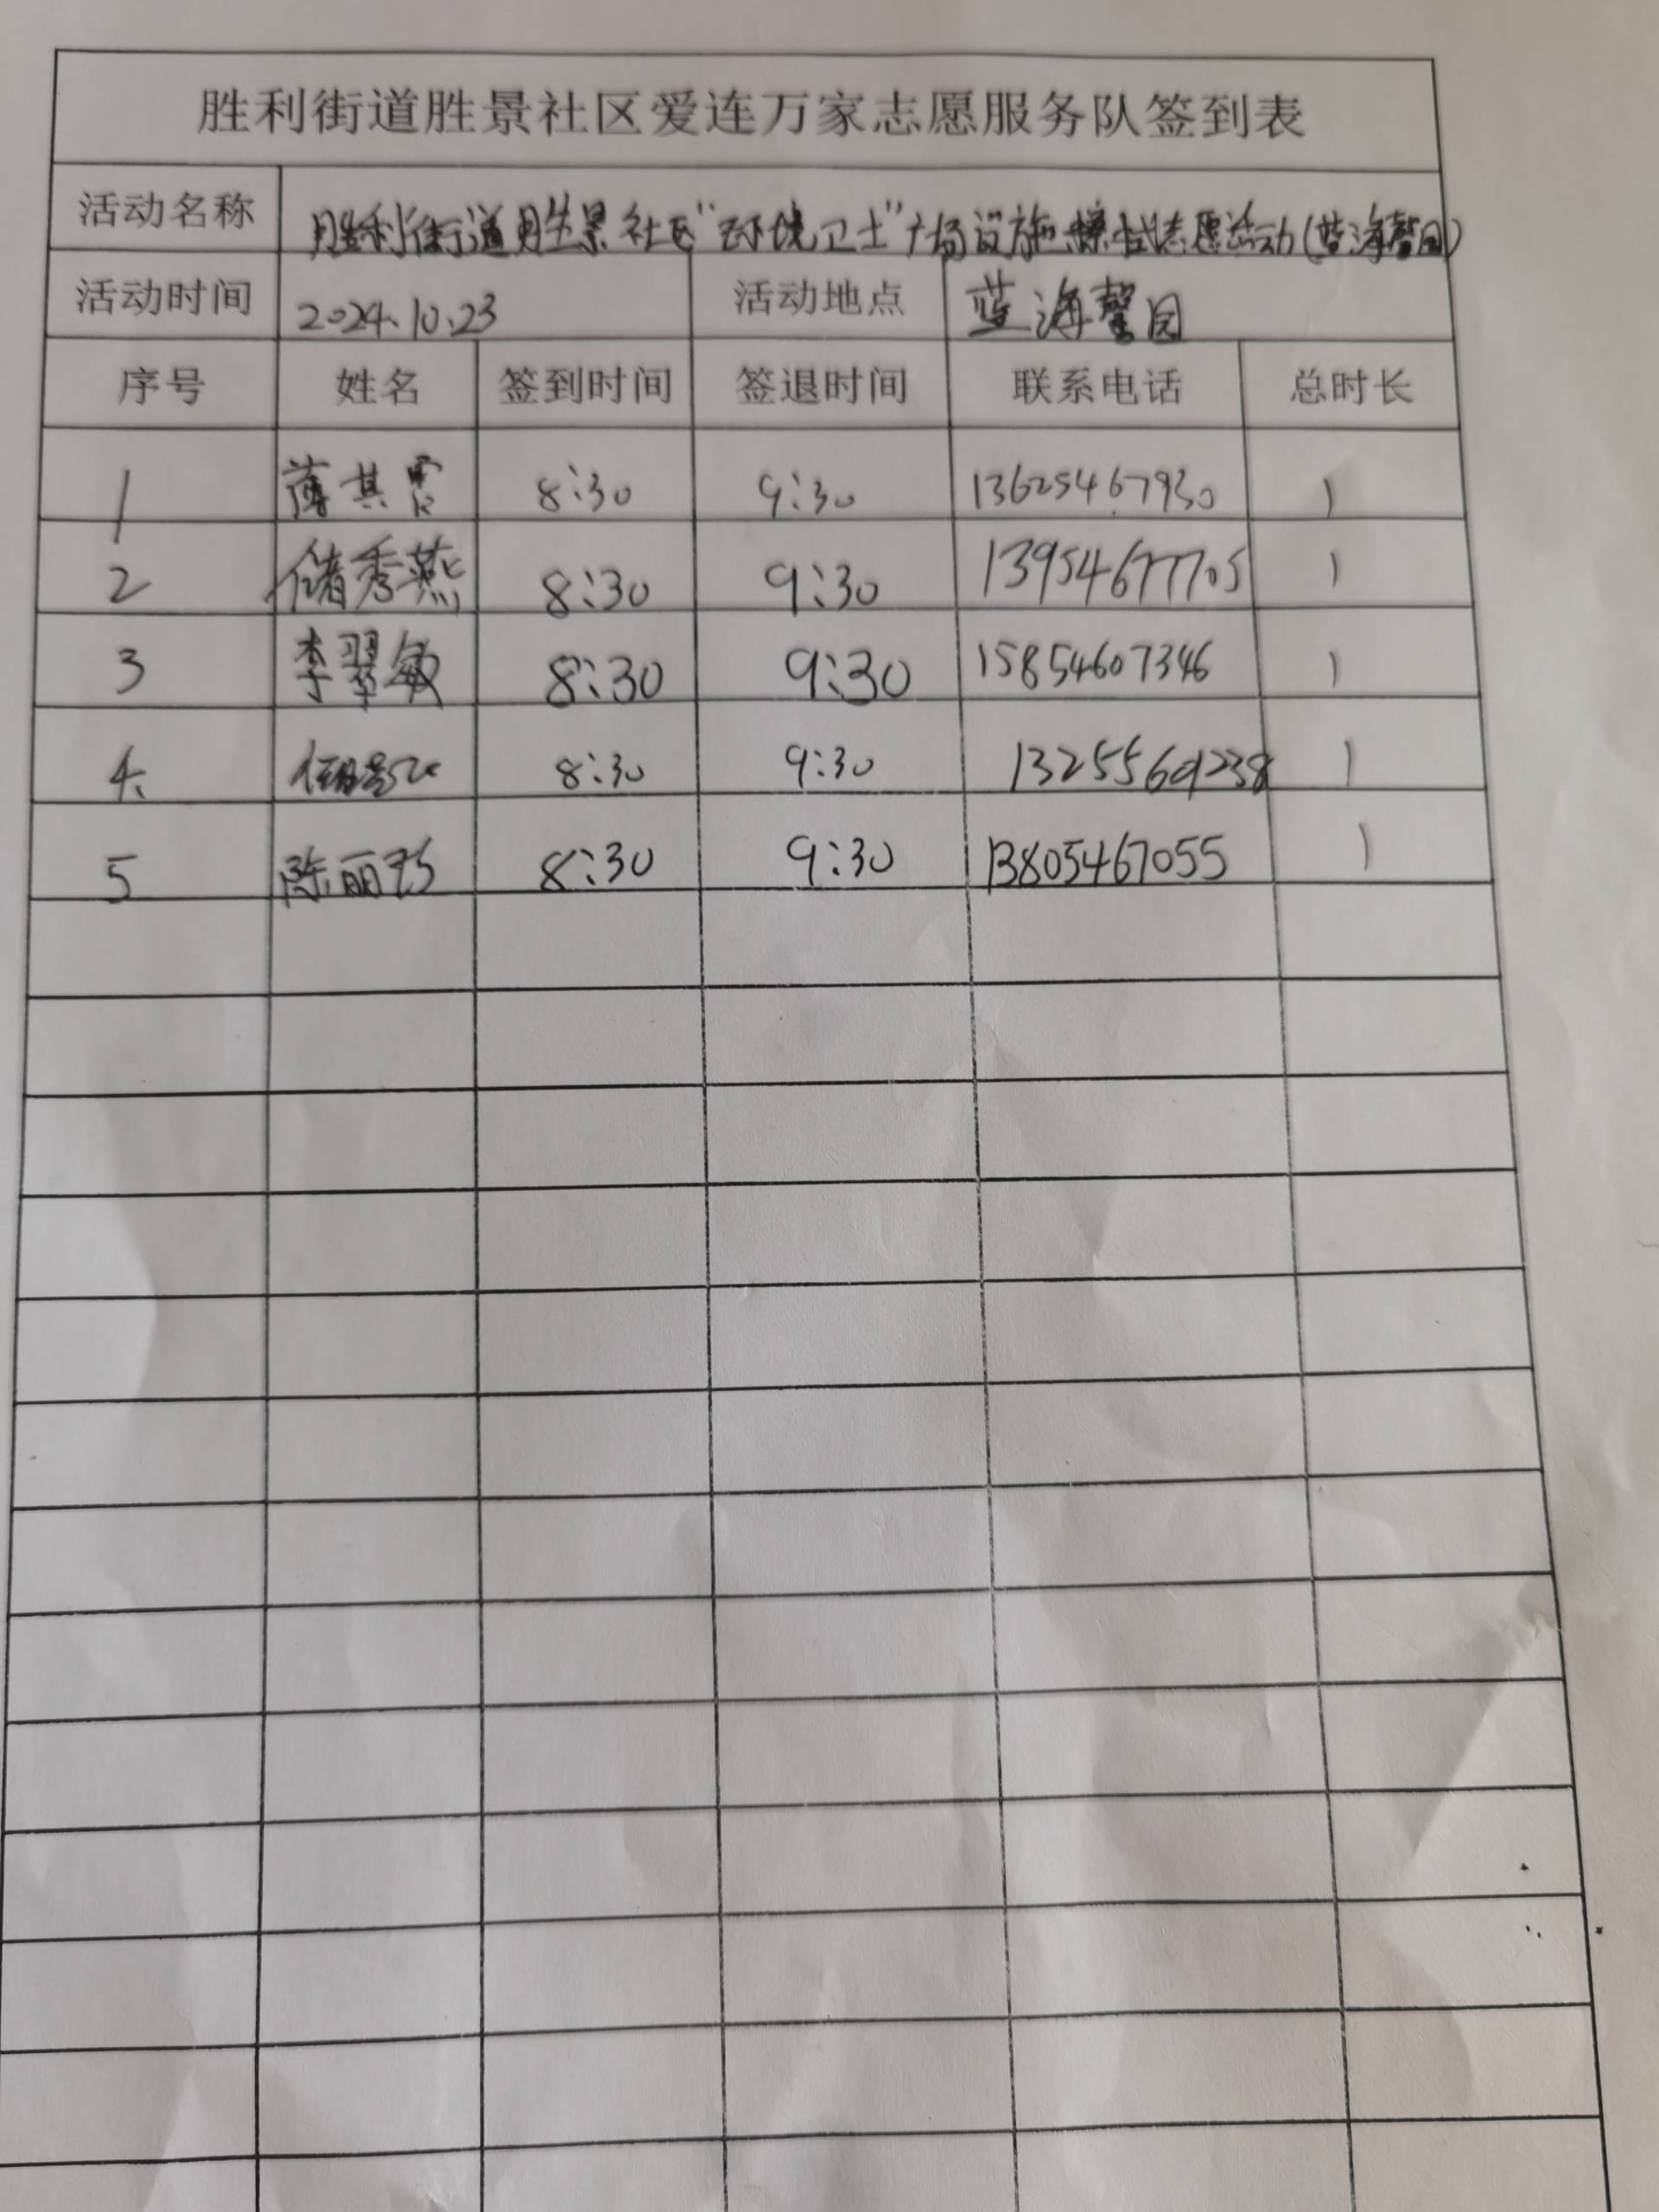 胜利街道胜景社区爱连万家志愿服务队签到表
活动名称 胜利街道胜景社区“环境卫士”广场设施擦拭志愿活动(蓝海馨园)
活动时间 2024.10.23 活动地点 蓝海馨园
序号 姓名 签到时间 签退时间 联系电话 总时长
1 薄其霞 8:30 9:30 13625467930 1
2 储秀燕 8:30 9:30 13954677705 1
3 李翠敏 8:30 9:30 15854607346 1
4. 8:30 9:30 1
5 陈丽 8:30 9:30 13805467055 1